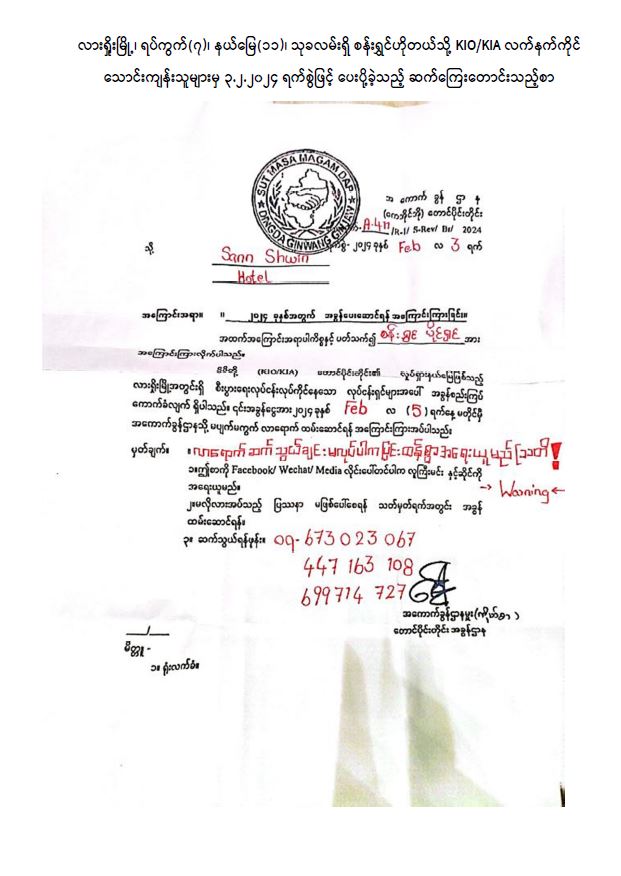 လားရှိုးမြို့၊ ရပ်ကွက်(၇)၊ နယ်မြေ(၁၁)၊ သုခလမ်းရှိ စန်းရွှင်ဟိုတယ်သို့ KIO/KIA လက်နက်ကိုင်
သောင်းကျန်းသူများမှ ၃.၂.၂၀၂၄ ရက်စွဲဖြင့် ပေးပို့ခဲ့သည့် ဆက်ကြေးတောင်းသည့်စာ
SUT MASA MAGAM DAP
DINGDA GINWANG GINJAW
အ ကောက် ခွန် ဌာ န
(ကေအိုင်အို) တောင်ပိုင်းတိုင်း
A-411 /R-1/ S-Rev/ Br/ 2024
၂၀၂၄ ခုနှစ် Feb လ 3 ရက်
သို့
Sann Shwin
Hotel
အကြောင်းအရာ။ ။ ၂၀၂၄ ခုနှစ်အတွက် အခွန်ပေးဆောင်ရန် အကြောင်းကြားခြင်း။
အထက်အကြောင်းအရာပါကိစ္စနှင့် ပတ်သက်၍ အား
အကြောင်းကြားလိုက်ပါသည်။
မိမိတို့ (KIO/KIA) တောင်ပိုင်းတိုင်း၏ လှုပ်ရှားနယ်မြေဖြစ်သည့်
လားရှိုးမြို့အတွင်းရှိ စီးပွားရေးလုပ်ငန်းလုပ်ကိုင်နေသော လုပ်ငန်းရှင်များအပေါ် အခွန်စည်းကြပ်
ကောက်ခံလျက် ရှိပါသည်။ ၎င်းအခွန်ငွေအား ၂၀၂၄ ခုနှစ် Feb လ (5) ရက်နေ့ မတိုင်မီ
အကောက်ခွန်ဌာနသို့ မပျက်မကွက် လာရောက် ထမ်းဆောင်ရန် အကြောင်းကြားအပ်ပါသည်။
မှတ်ချက်။ ။ လာရောက် ဆက်သွယ်ခြင်း မလုပ်ပါက ပြင်းထန်စွာ အရေးယူမည် !
၁။ဤစာကို Facebook/ Wechat/ Media လိုင်းပေါ်တင်ပါက လူကြီးမင်း နှင့်ဆိုင်ကို
အရေးယူမည်။ → Warning ←
၂။မလိုလားအပ်သည့် ပြဿနာ မဖြစ်ပေါ်စေရန် သတ်မှတ်ရက်အတွင်း အခွန်
ထမ်းဆောင်ရန်။
၃။ ဆက်သွယ်ရန်ဖုန်း။ 09-673023067
447 163 108
699714 727
အကောက်ခွန်ဌာနမှူး
တောင်ပိုင်းတိုင်း အခွန်ဌာန
မိတ္တူ -
၁။ ရုံးလက်ခံ။